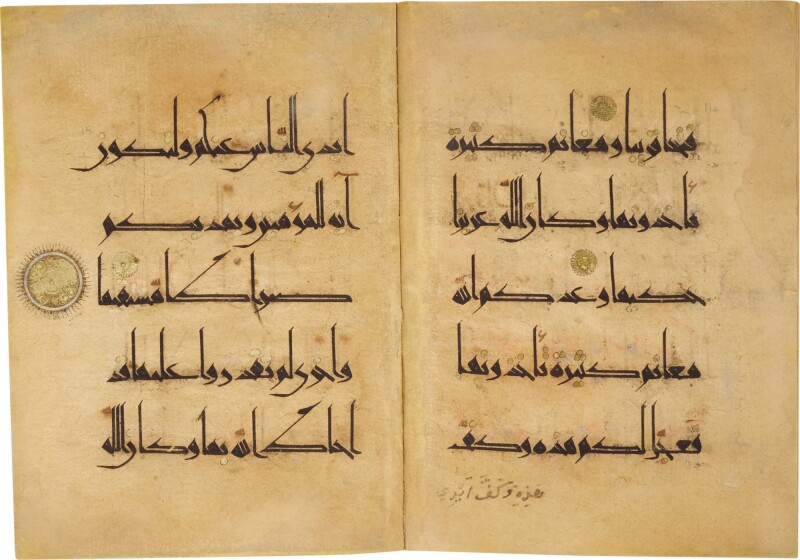 فتحا قريبا ومغانم كثيرة
يأخذونها وكان الله عزيزا
حكيما وعدكم الله
مغانم كثيرة تأخذونها
فعجل لكم هذه وكف
هذه وَكَفَّ أَيْدِي
ايدي الناس عنكم ولتكون
آية للمؤمنين ويهديكم
صراطا مستقيما
واخرى لم تقدروا عليها قد
احاط الله بها وكان الله